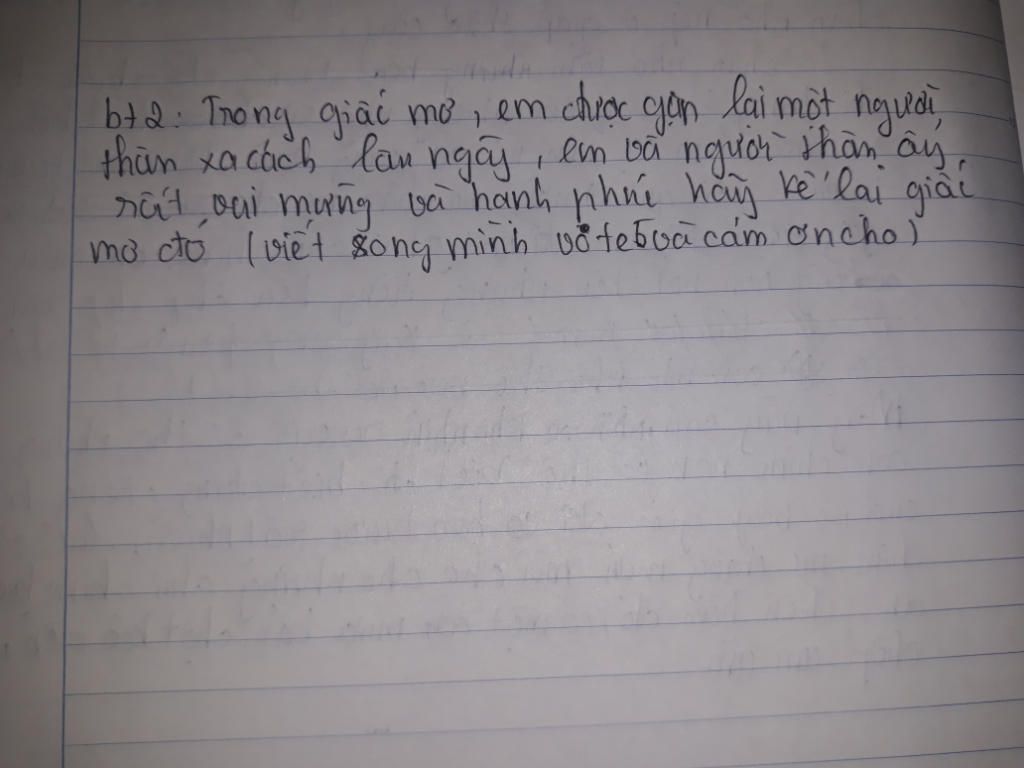 bt2: Trong giấc mơ, em được gặp lại một người
thân xa cách lâu ngày, em và người thân ấy
rất vui mừng và hạnh phúc hãy kể lại giấc
mơ đó (viết song mình vote5 và cám ơn cho)